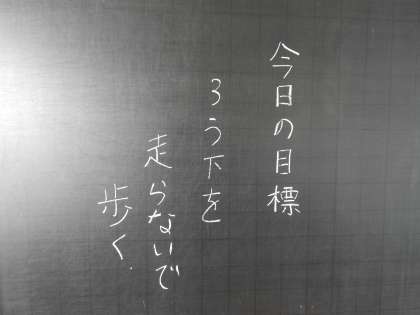 今日の目標
ろう下を
走らないで
歩く.